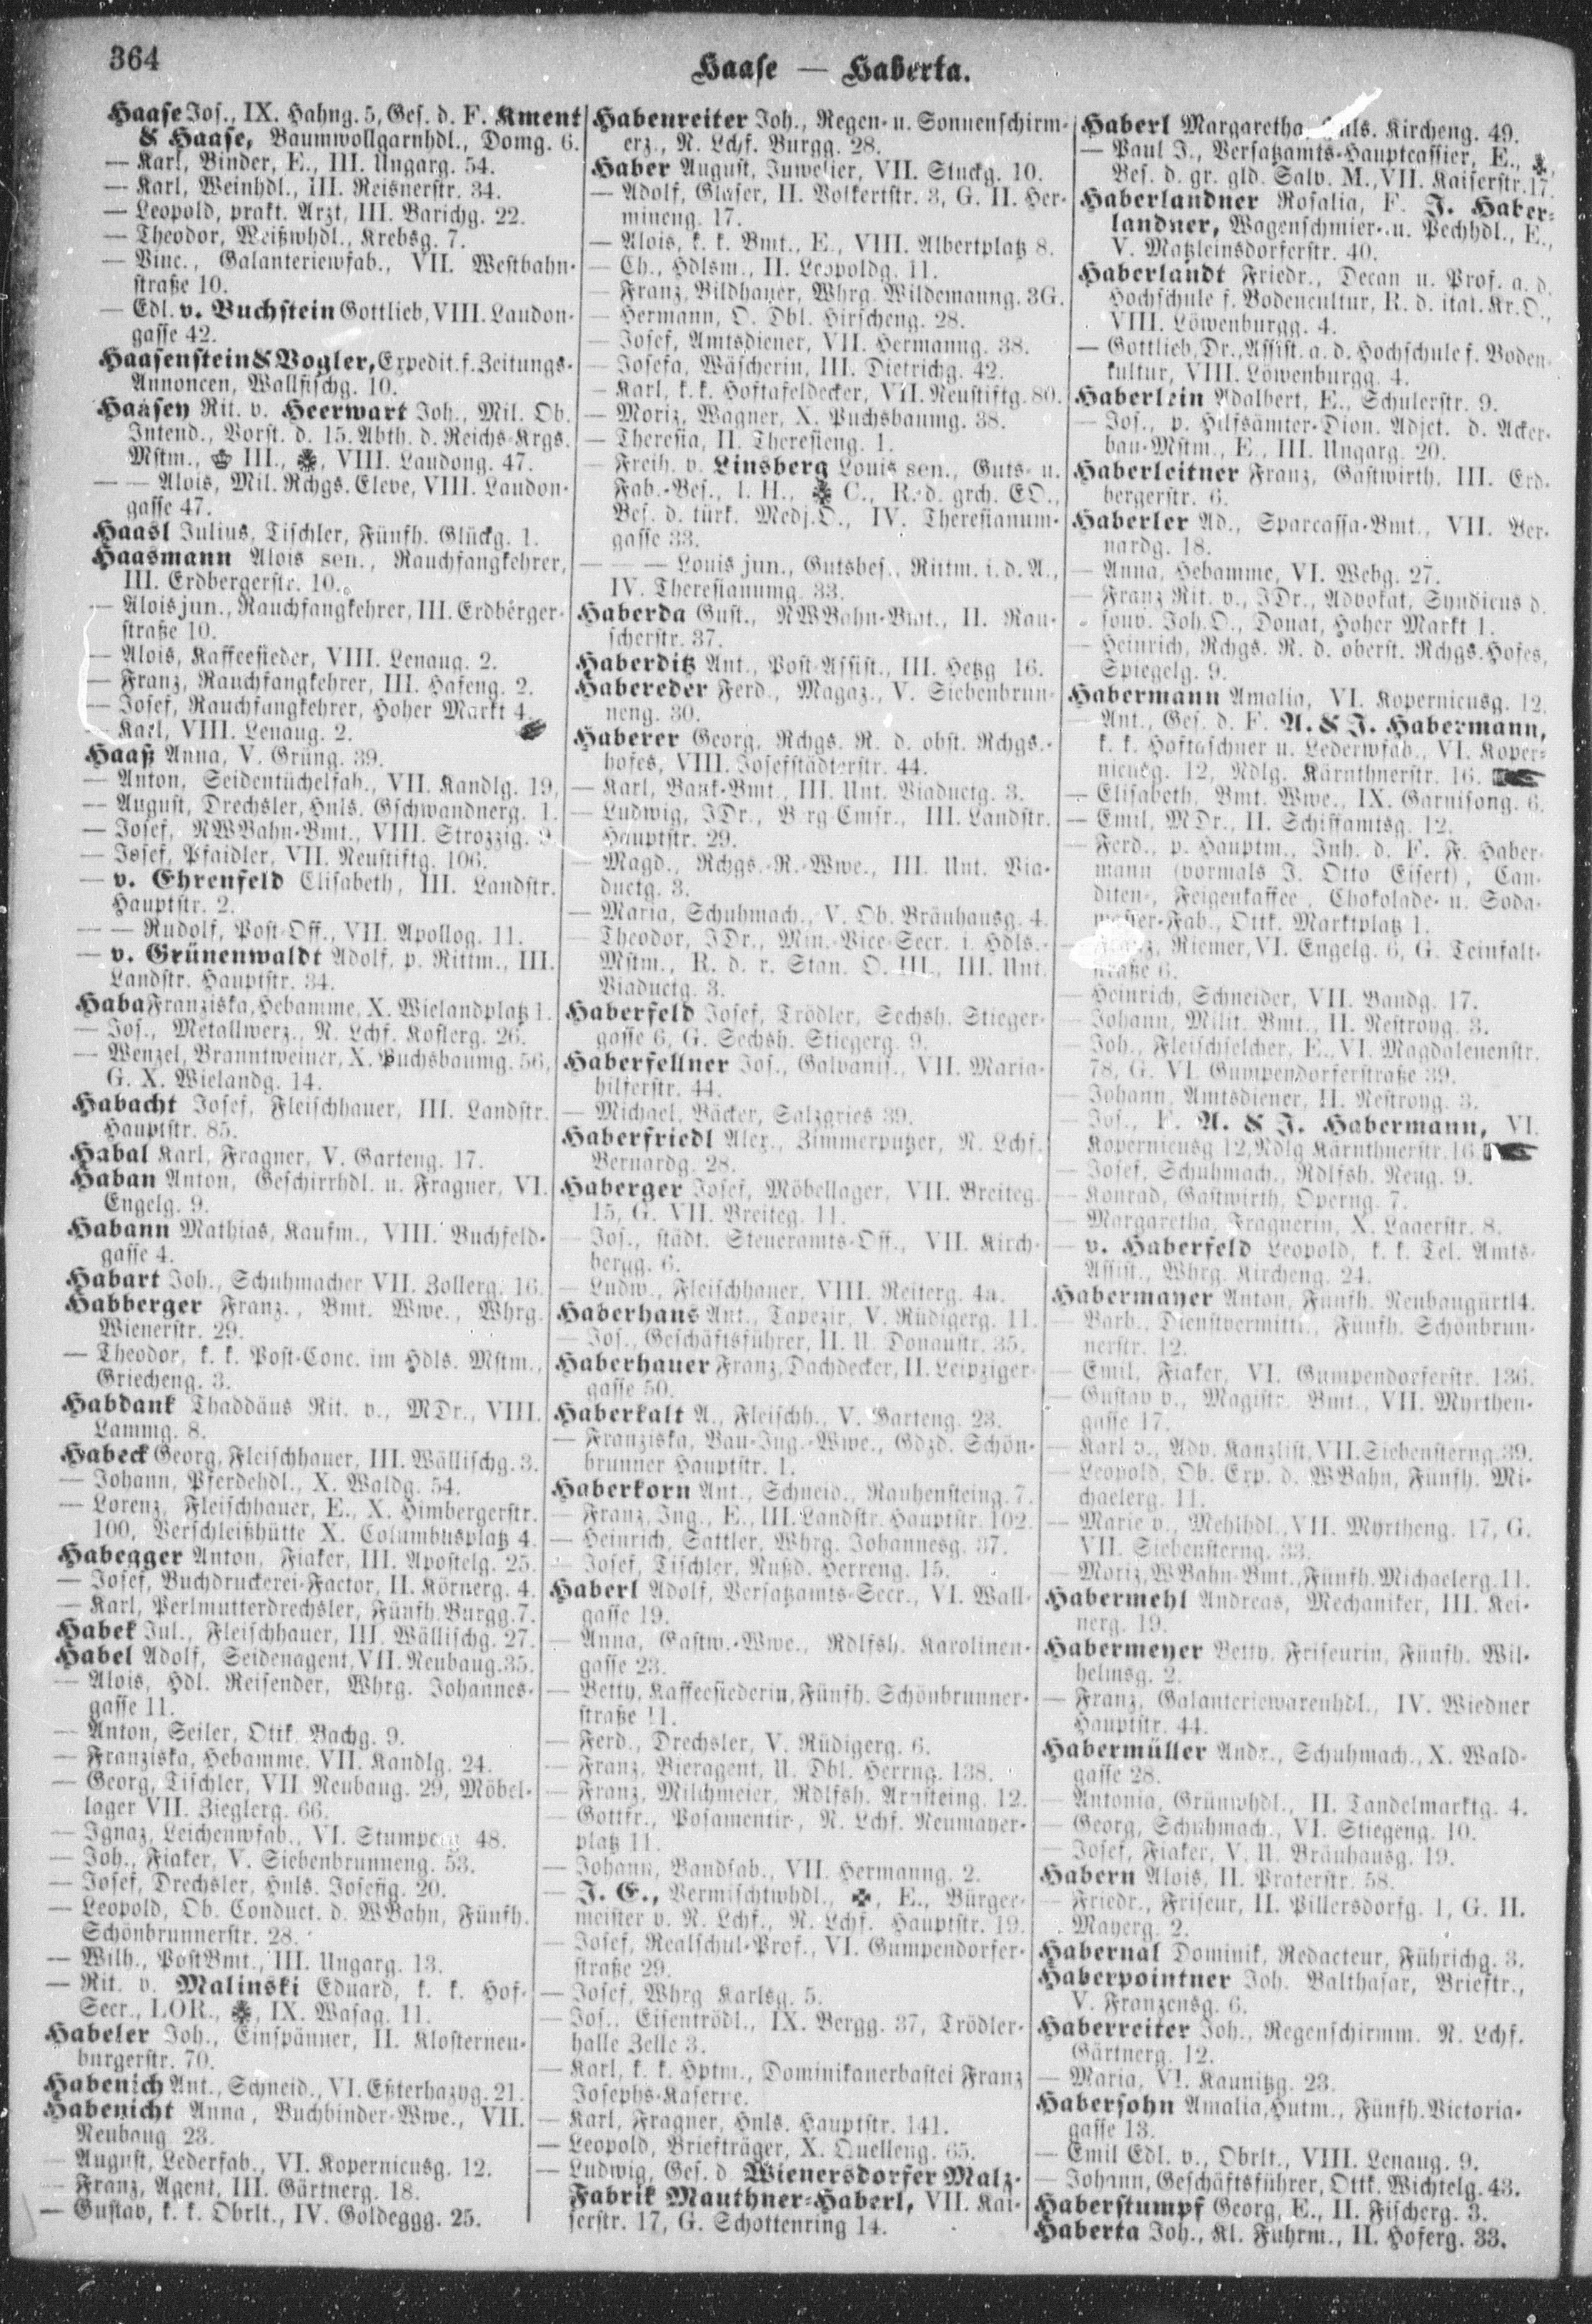 364
Haase — Haberta.
Haase Jos., IX. Hahng. 5, Ges. d. F. Kment
& Haase, Baumwollgarnhdl., Domg. 6.
— Karl, Binder, E., III. Ungarg. 54.
— Karl, Weinhdl., III. Reisnerstr. 34.
— Leopold, prakt. Arzt, III. Barichg. 22.
— Theodor, Weißwhdl., Krebsg. 7.
— Vinc., Galanteriewfab., VII. Westbahn-
straße 10.
— Edl. v. Buchstein Gottlieb, VIII. Laudon-
gasse 42.
Haasenstein & Vogler, Expedit. f. Zeitungs-
Annoncen, Wallfischg. 10.
Haasey Rit. v. Heerwart Joh., Mil. Ob.
Intend., Vorst. d. 15. Abth. d. Reichs-Krgs.
Mstm., III., VIII. Laudong. 47.
— — Alois, Mil. Rchgs. Eleve, VIII. Laudon-
gasse 47.
Haasl Julius, Tischler, Fünfh. Glückg. 1.
Haasmann Alois sen., Rauchfangkehrer,
III. Erdbergerstr. 10.
— Alois jun., Rauchfangkehrer, III. Erdberger-
straße 10.
— Alois, Kaffeesieder, VIII. Lenaug. 2.
— Franz, Rauchfangkehrer, III. Hafeng. 2.
— Josef, Rauchfangkehrer, Hoher Markt 4.
Karl, VIII. Lenaug. 2.
Haaß Anna, V. Grüng. 39.
— Anton, Seidentüchelfab., VII. Kandlg. 19,
— August, Drechsler, Hnls. Gschwandnerg. 1.
— Josef, NWBahn-Bmt., VIII. Strozzig. 9
— Josef, Pfaidler, VII. Neustiftg. 106.
— v. Ehrenfeld Elisabeth, III. Landstr.
Hauptstr. 2.
— — Rudolf, Post-Off., VII. Apollog. 11.
— v. Grünenwaldt Adolf, p. Rittm., III.
Landstr. Hauptstr. 34.
Haba Franziska, Hebamme, X. Wielandplatz 1.
— Jos., Metallwerz., N. Lchf. Koflerg. 26.
— Wenzel, Branntweiner, X. Puchsbaumg. 56,
G. X. Wielandg. 14.
Habacht Josef, Fleischhauer, III. Landstr.
Hauptstr. 85.
Habal Karl, Fragner, V. Garteng. 17.
Haban Anton, Geschirrhdl. u. Fragner, VI.
Engelg. 9.
Habann Mathias, Kaufm., VIII. Buchfeld-
gasse 4.
Habart Joh., Schuhmacher VII. Zollerg. 16.
Habberger Franz., Bmt. Wwe., Whrg.
Wienerstr. 29.
— Theodor, k. k. Post-Conc. im Hdls. Mstm.,
Griecheng. 3.
Habdank Thaddäus Rit. v., MDr., VIII.
Lammg. 8.
Habeck Georg, Fleischhauer, III. Wällischg. 3.
— Johann, Pferdehdl., X. Waldg. 54.
— Lorenz, Fleischhauer, E., X. Himbergerstr.
100, Verschleißhütte X. Columbusplatz 4.
Habegger Anton, Fiaker, III. Apostelg. 25.
— Josef, Buchdruckerei-Factor, II. Körnerg. 4.
— Karl, Perlmutterdrechsler, Fünfh. Burgg. 7.
Habek Jul., Fleischhauer, III. Wällischg. 27.
Habel Adolf, Seidenagent, VII. Neubaug. 35.
— Alois, Hdl. Reisender, Whrg. Johannes-
gasse 11.
— Anton, Seiler, Ottk. Bachg. 9.
— Franziska, Hebamme, VII. Kandlg. 24.
— Georg, Tischler, VII Neubaug. 29, Möbel-
lager VII. Zieglerg. 66.
— Ignaz, Leichenwfab., VI. 48.
— Joh., Fiaker, V. Siebenbrunneng. 53.
— Josef, Drechsler, Hnls. Josefig. 20.
— Leopold, Ob. Conduct. d. WBahn, Fünfh.
Schönbrunnerstr. 28.
— Wilh., PostBmt., III. Ungarg. 13.
— Rit. v. Malinski Eduard, k. k. Hof-
Secr., LOR., IX. Wasag. 11.
Habeler Joh., Einspänner, II. Klosterneu-
burgerstr. 70.
Habenich Ant., Schneid., VI. Eßterhazyg. 21.
Habenicht Anna, Buchbinder-Wwe., VII.
Neubaug 23.
August, Lederfab., VI. Kopernicusg. 12.
Franz, Agent, III. Gärtnerg. 18.
— Gustav, k. k. Obrlt., IV. Goldeggg. 25.
Habenreiter Joh., Regen- u. Sonnenschirm-
erz., N. Lchf. Burgg. 28.
Haber August, Juwelier, VII. Stuckg. 10.
— Adolf, Glaser, II. Volkertstr. 3, G. II. Her-
mineng. 17.
— Alois, k. k. Bmt., E., VIII. Albertplatz 8.
— Ch., Hdlsm., II. Leopoldg. 11.
— Franz, Bildhauer, Whrg. Wildemanng. 3G.
— Hermann, O. Dbl. Hirscheng. 28.
— Josef, Amtsdiener, VII. Hermanng. 38.
— Josefa, Wäscherin, III. Dietrichg. 42.
— Karl, k. k. Hoftafeldecker, VII. Neustiftg. 80.
— Moriz, Wagner, X. Puchsbaumg. 38.
— Theresia, II. Theresieng. 1.
— Freih. v. Linsberg Louis sen., Guts- u.
Fab.-Bes., I. H., C., R. d. grch. EO.,
Bes. d. türk. Medj. O., IV. Theresianum-
gasse 33.
— — — Louis jun., Gutsbes., Rittm. i. d. A.,
IV. Theresianumg. 33.
Haberda Gust., NWBahn-Bmt., II. Rau-
scherstr. 37.
Haberditz Ant., Post-Assist., III. Hetzg 16.
Habereder Ferd., Magaz., V. Siebenbrun-
neng. 30.
Haberer Georg, Rchgs. R. d. obst. Rchgs.-
hofes, VIII. Josefstädterstr. 44.
— Karl, Bank-Bmt., III. Unt. Viaductg. 3.
— Ludwig, JDr., Brg Cmsr., III. Landstr.
Hauptstr. 29.
— Magd., Rchgs.-R.-Wwe., III. Unt. Via-
ductg. 3.
— Maria, Schuhmach., V. Ob. Bräuhausg. 4.
— Theodor, JDr., Min.-Vice-Secr. i. Hdls.-
Mstm., R. d. r. Stan. O. III., III. Unt.
Viaductg. 3.
Haberfeld Josef, Trödler, Sechsh. Stieger-
gasse 6, G. Sechsh. Stiegerg. 9.
Haberfellner Jos., Galvanis., VII. Maria-
hilferstr. 44.
— Michael, Bäcker, Salzgries 39.
Haberfriedl Alex., Zimmerputzer, N. Lchf.
Bernardg. 28.
Haberger Josef, Möbellager, VII. Breiteg.
15, G. VII. Breiteg. 11.
— Jos., städt. Steueramts-Off., VII. Kirch-
bergg. 6.
— Ludw., Fleischhauer, VIII. Reiterg. 4a.
Haberhans Ant., Tapezir, V. Rüdigerg. 11.
— Jos., Geschäftsführer, II. U. Donaustr. 35.
Haberhauer Franz, Dachdecker, II. Leipziger-
gasse 50.
Haberkalt A., Fleischh., V. Garteng. 23.
— Franziska, Bau-Ing.-Wwe., Gdzd. Schön-
brunner Hauptstr. 1.
Haberkorn Ant., Schneid., Rauhensteing. 7.
— Franz, Ing., E., III. Landstr. Hauptstr. 102.
— Heinrich, Sattler, Whrg. Johannesg. 37.
— Josef, Tischler, Nußd. Herreng. 15.
Haberl Adolf, Versatzamts-Secr., VI. Wall-
gasse 19.
— Anna, Gastw.-Wwe., Rdlfsh. Karolinen-
gasse 23.
— Betty, Kaffeesiederin, Fünfh. Schönbrunner-
straße 11.
— Ferd., Drechsler, V. Rüdigerg. 6.
— Franz, Bieragent, U. Dbl. Herrng. 138.
— Franz, Milchmeier, Rdlfsh. Arnsteing. 12.
— Gottfr., Posamentir, N. Lchf. Neumayer-
platz 11.
— Johann, Bandfab., VII. Hermanng. 2.
— J. E., Vermischtwhdl., E., Bürger-
meister v. N. Lchf., N. Lchf. Hauptstr. 19.
— Josef, Realschul-Prof., VI. Gumpendorfer-
straße 29.
— Josef, Whrg Karlsg. 5.
— Jos., Eisentrödl., IX. Bergg. 37, Trödler-
halle Zelle 3.
— Karl, k. k. Hptm., Dominikanerbastei Franz
Josephs-Kaserne.
— Karl, Fragner, Hnls. Hauptstr. 141.
— Leopold, Briefträger, X. Quelleng. 65.
— Ludwig, Ges. d. Wienersdorfer Malz-
Fabrik Mauthner-Haberl, VII. Kai-
serstr. 17, G. Schottenring 14.
Haberl Margaretha, Kircheng. 49.
— Paul J., Versatzamts-Hauptcassier, E.,
Bes. d. gr. gld. Salv. M., VII. Kaiserstr. 17.
Haberlandner Rosalia, F. J. Haber-
landner, Wagenschmier- u. Pechhdl., E.,
V. Matzleinsdorferstr. 40.
Haberlandt Friedr., Decan u. Prof. a. d.
Hochschule f. Bodencultur, R. d. ital. Kr. O.,
VIII. Löwenburgg. 4.
— Gottlieb, Dr., Assist. a. d. Hochschule f. Boden-
kultur, VIII. Löwenburgg. 4.
Haberlein Adalbert, E., Schulerstr. 9.
— Jos., p. Hilfsämter-Dion. Adjct. d. Acker-
bau-Mstm., E., III. Ungarg. 20.
Haberleitner Franz, Gastwirth, III. Erd-
bergerstr. 6.
Haberler Ad., Sparcassa-Bmt., VII. Ber-
nardg. 18.
— Anna, Hebamme, VI. Webg. 27.
— Franz Rit. v., JDr., Advokat, Syndicus d.
souv. Joh. O., Donat, Hoher Markt 1.
— Heinrich, Rchgs. R. d. oberst. Rchgs. Hofes,
Spiegelg. 9.
Habermann Amalia, VI. Kopernicusg. 12.
— Ant., Ges. d. F. A. & J. Habermann,
k. k. Hoftaschner u. Lederwfab., VI. Koper-
nicusg. 12, Ndlg. Kärnthnerstr. 16.
— Elisabeth, Bmt. Wwe., IX. Garnisong. 6.
— Emil, MDr., II. Schiffamtsg. 12.
— Ferd., p. Hauptm., Inh. d. F. F. Haber-
mann (vormals J. Otto Eisert), Can-
diten-, Feigenkaffee, Chokolade- u. Soda-
wasser-Fab., Ottk. Marktplatz 1.
Franz, Riemer, VI. Engelg. 6, G. Teinfalt-
straße 6.
— Heinrich, Schneider, VII. Bandg. 17.
— Johann, Milit. Bmt., II. Nestroyg. 3.
— Joh., Fleischselcher, E., VI. Magdalenenstr.
78, G. VI. Gumpendorferstraße 39.
— Johann, Amtsdiener, II. Nestroyg. 3.
— Jos., F. A. & J. Habermann, VI.
Kopernicusg 12, Ndlg Kärnthnerstr. 16.
— Josef, Schuhmach., Rdlfsh. Neug. 9.
— Konrad, Gastwirth, Operng. 7.
— Margaretha, Fragnerin, X. Lagerstr. 8.
— v. Haberfeld Leopold, k. k. Tel. Amts-
Assist., Whrg. Kircheng. 24.
Habermayer Anton, Fünfh. Neubaugürtl 4.
— Barb., Dienstvermittl., Fünfh. Schönbrun-
nerstr. 12.
— Emil, Fiaker, VI. Gumpendorferstr. 136.
— Gustav v., Magistr. Bmt., VII. Myrthen-
gasse 17.
— Karl v., Adv. Kanzlist, VII. Siebensterng. 39.
— Leopold, Ob. Exp. d. WBahn, Fünfh. Mi-
chaelerg. 11.
— Marie v., Mehlhdl., VII. Myrtheng. 17, G.
VII. Siebensterng. 33.
— Moriz, WBahn-Bmt., Fünfh. Michaelerg. 11.
Habermehl Andreas, Mechaniker, III. Kei-
nerg. 19.
Habermeyer Betty, Friseurin, Fünfh. Wil-
helmsg. 2.
— Franz, Galanteriewarenhdl., IV. Wiedner
Hauptstr. 44.
Habermüller Andr., Schuhmach., X. Wald-
gasse 28.
— Antonia, Grünwhdl., II. Tandelmarktg. 4.
— Georg, Schuhmach., VI. Stiegeng. 10.
— Josef, Fiaker, V. U. Bräuhausg. 19.
Habern Alois, II. Praterstr. 58.
— Friedr., Friseur, II. Pillersdorfg. 1, G. II.
Mayerg. 2.
Habernal Dominik, Redacteur, Führichg. 3.
Haberpointner Joh. Balthasar, Brieftr.,
V. Franzensg. 6.
Haberreiter Joh., Regenschirmm. N. Lchf.
Gärtnerg. 12.
— Maria, VI. Kaunitzg. 23.
Habersohn Amalia, Hutm., Fünfh. Victoria-
gasse 13.
— Emil Edl. v., Obrlt., VIII. Lenaug. 9.
— Johann, Geschäftsführer, Ottk. Wichtelg. 43.
Haberstumpf Georg, E., II. Fischerg. 3.
Haberta Joh., Kl. Fuhrm., II. Hoferg. 33.